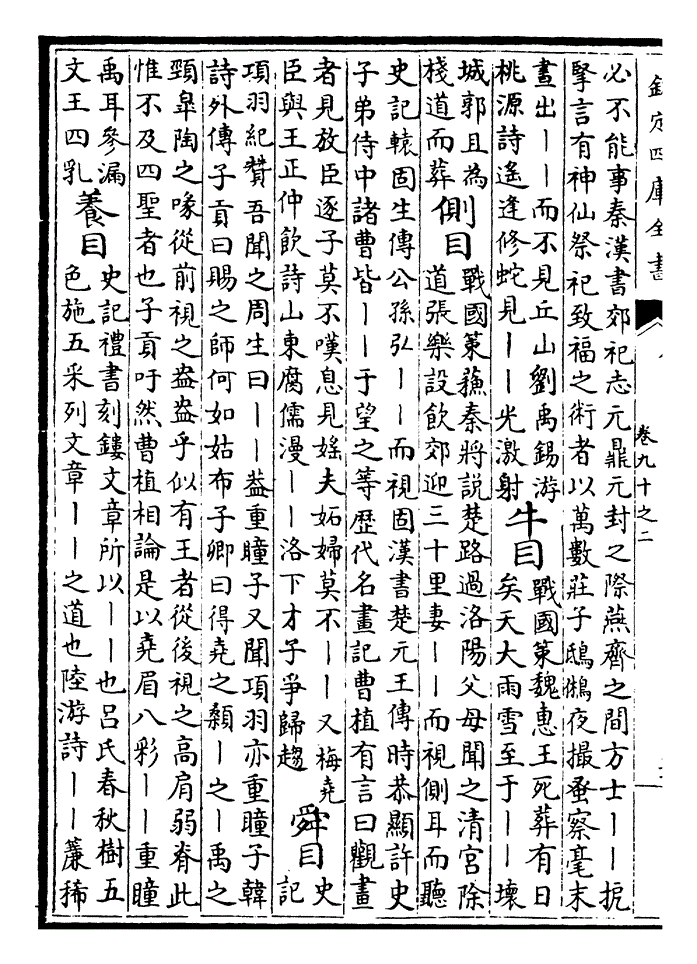 欽定四庫全書
卷九十之二
必不能事秦漢書郊祀志元鼎元封之際燕齊之間方士丨丨扼
掔言有神仙祭祀致福之術者以萬數莊子鴟鵂夜撮蚤察毫末
晝出丨丨而不見丘山劉禹錫游
桃源詩遙逢修蛇見丨丨光激射
牛目
戰國策魏惠王死葬有日
矣天大雨雪至于丨丨壞
城郭且為
棧道而葬
側目
戰國策蘇秦將說楚路過洛陽父母聞之清宮除
道張樂設飲郊迎三十里妻丨丨而視側耳而聽
史記轅固生傳公孫弘丨丨而視固漢書楚元王傳時恭顯許史
子弟侍中諸曹皆丨丨于望之等歴代名畫記曹植有言曰觀畫
者見放臣逐子莫不嘆息見婬夫妬婦莫不丨丨又梅堯
臣與王正仲飲詩山東腐儒漫丨丨洛下才子爭歸趨
舜目
史
記
項羽紀贊吾聞之周生曰丨丨葢重瞳子又聞項羽亦重瞳子韓
詩外傳子貢曰賜之師何如姑布子卿曰得堯之顙丨之丨禹之
頸臯陶之喙從前視之盎盎乎似有王者從後視之高肩弱脊此
惟不及四聖者也子貢吁然曹植相論是以堯眉八彩丨丨重瞳
禹耳參漏
文王四乳
養目
史記禮書刻鏤文章所以丨丨也呂氏春秋樹五
色施五采列文章丨丨之道也陸游詩丨丨簾稀